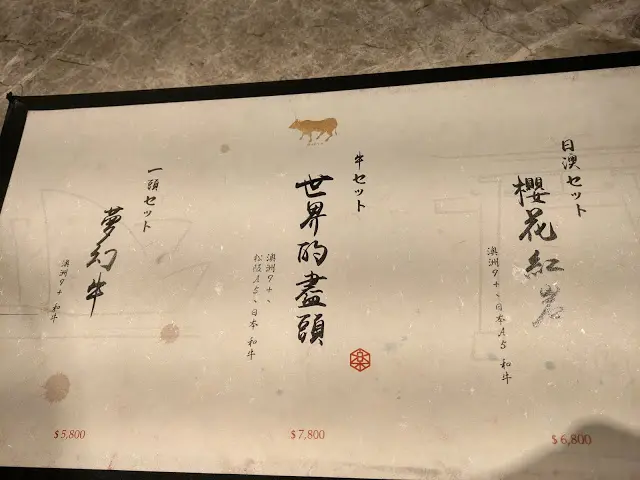 日澳セット
櫻花紅岩
澳洲9+、日本A5 和牛
$6,800
牛セット
世界的盡頭
澳洲9+、
松阪A5、日本 和牛
$7,800
一頭セット
夢幻牛
澳洲9+ 和牛
$5,800